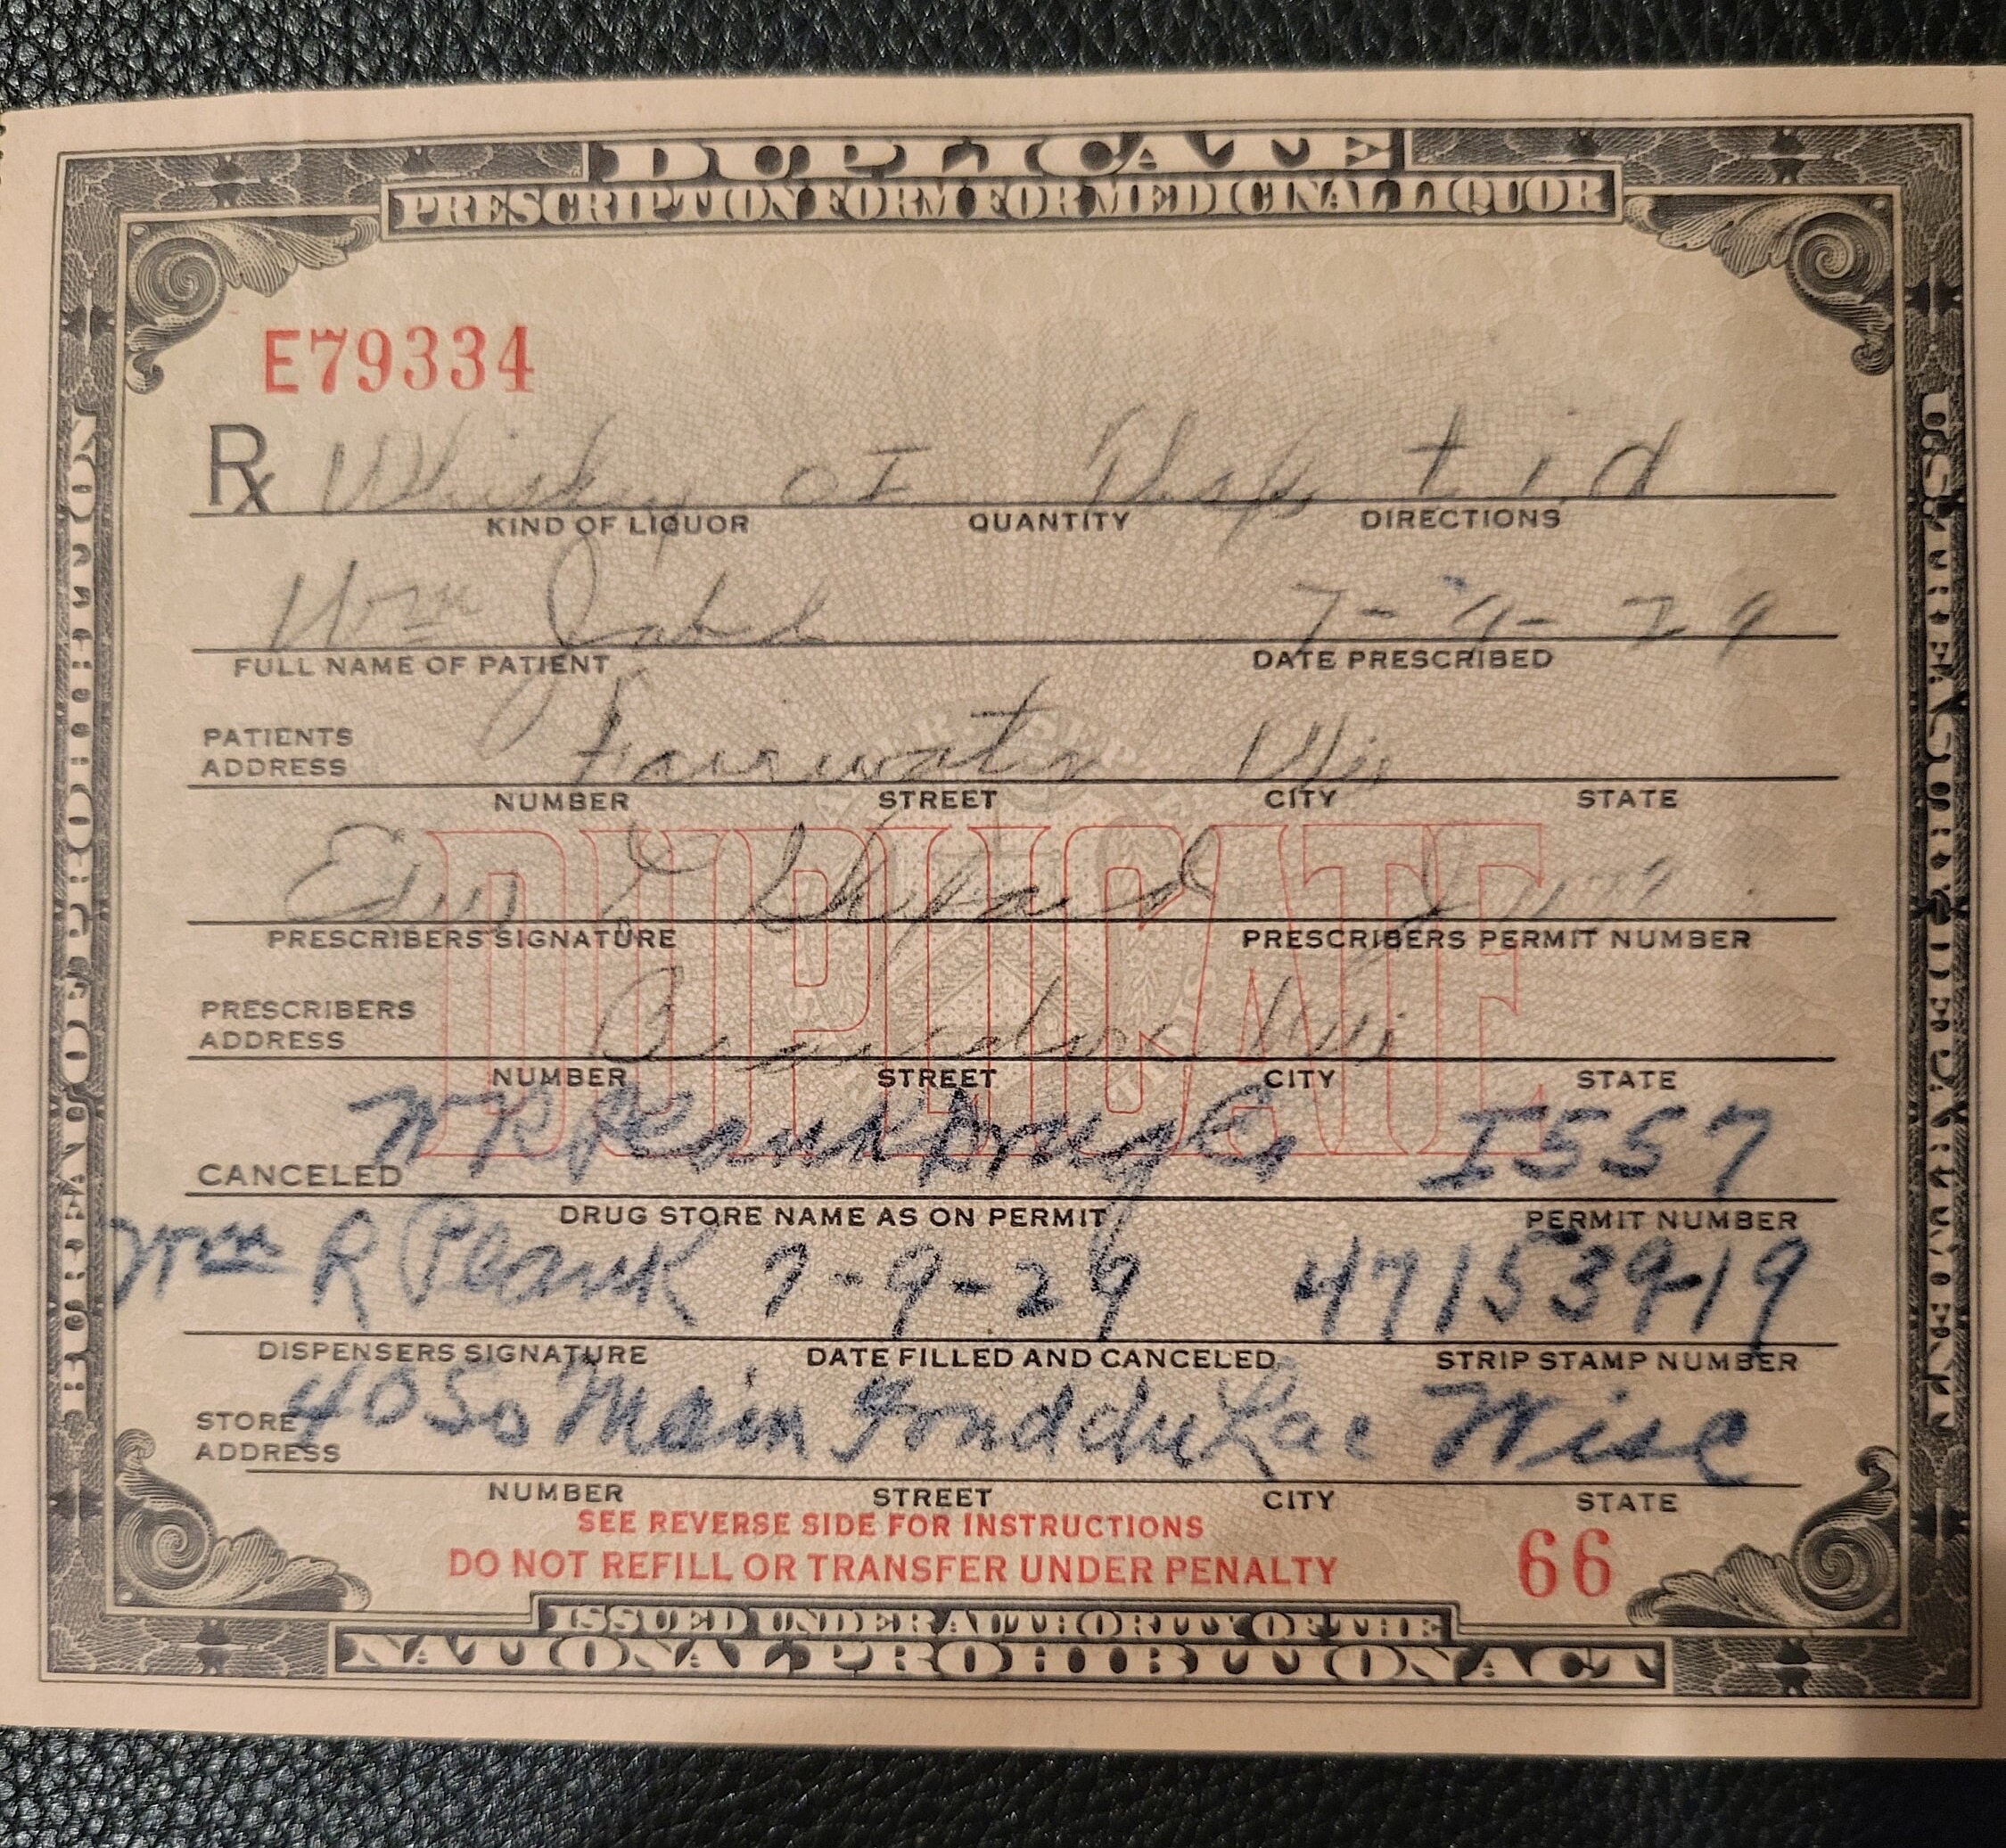 DUPLICATE
PRESCRIPTION FORM FOR MEDICINAL LIQUOR
E79334
Rx Whiskey OI t i d
KIND OF LIQUOR QUANTITY DIRECTIONS
Wm 7-9-29
FULL NAME OF PATIENT DATE PRESCRIBED
PATIENTS ADDRESS Fairwater Wis
NUMBER STREET CITY STATE
DUPLICATE
PRESCRIBERS SIGNATURE PRESCRIBERS PERMIT NUMBER
PRESCRIBERS ADDRESS Brandon Wis
NUMBER STREET CITY STATE
CANCELED W R Plank Drug Co I557
DRUG STORE NAME AS ON PERMIT PERMIT NUMBER
Wm R Plank 7-9-29 47153919
DISPENSERS SIGNATURE DATE FILLED AND CANCELED STRIP STAMP NUMBER
STORE ADDRESS 40 So Main Fond du Lac Wisc
NUMBER STREET CITY STATE
SEE REVERSE SIDE FOR INSTRUCTIONS
DO NOT REFILL OR TRANSFER UNDER PENALTY
66
ISSUED UNDER AUTHORITY OF THE
NATIONAL PROHIBITION ACT
BUREAU OF PROHIBITION
U.S. TREASURY DEPARTMENT